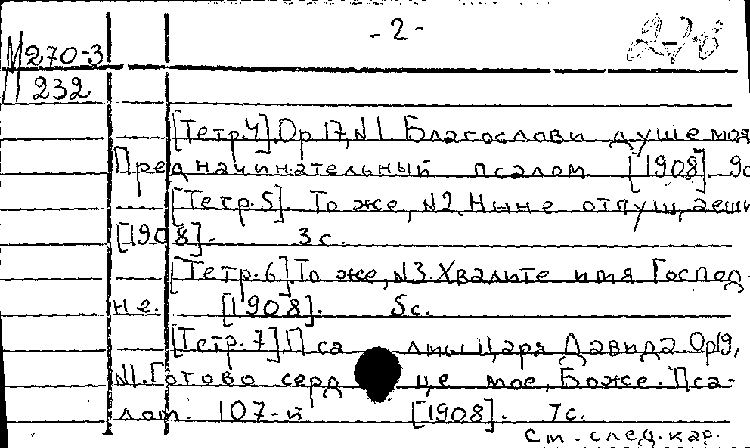 - 2 -
М270-3
232
[Тетр.4]. Ор.17,N1. Благослови душе моя
Предначинательный псалом [1908]. 9с
[Тетр.5]. То же, N2. Ныне отпущаеши
[1908]. 3с.
[Тетр.6]. То же, N3. Хвалите имя Господ-
не. [1908]. 5с.
[Тетр.7]. Псалмы Царя Давида. Ор19,
N1. Готово сердце мое, Боже. Пса-
лом. 107-й [1908]. 7с.
см. след. кар.